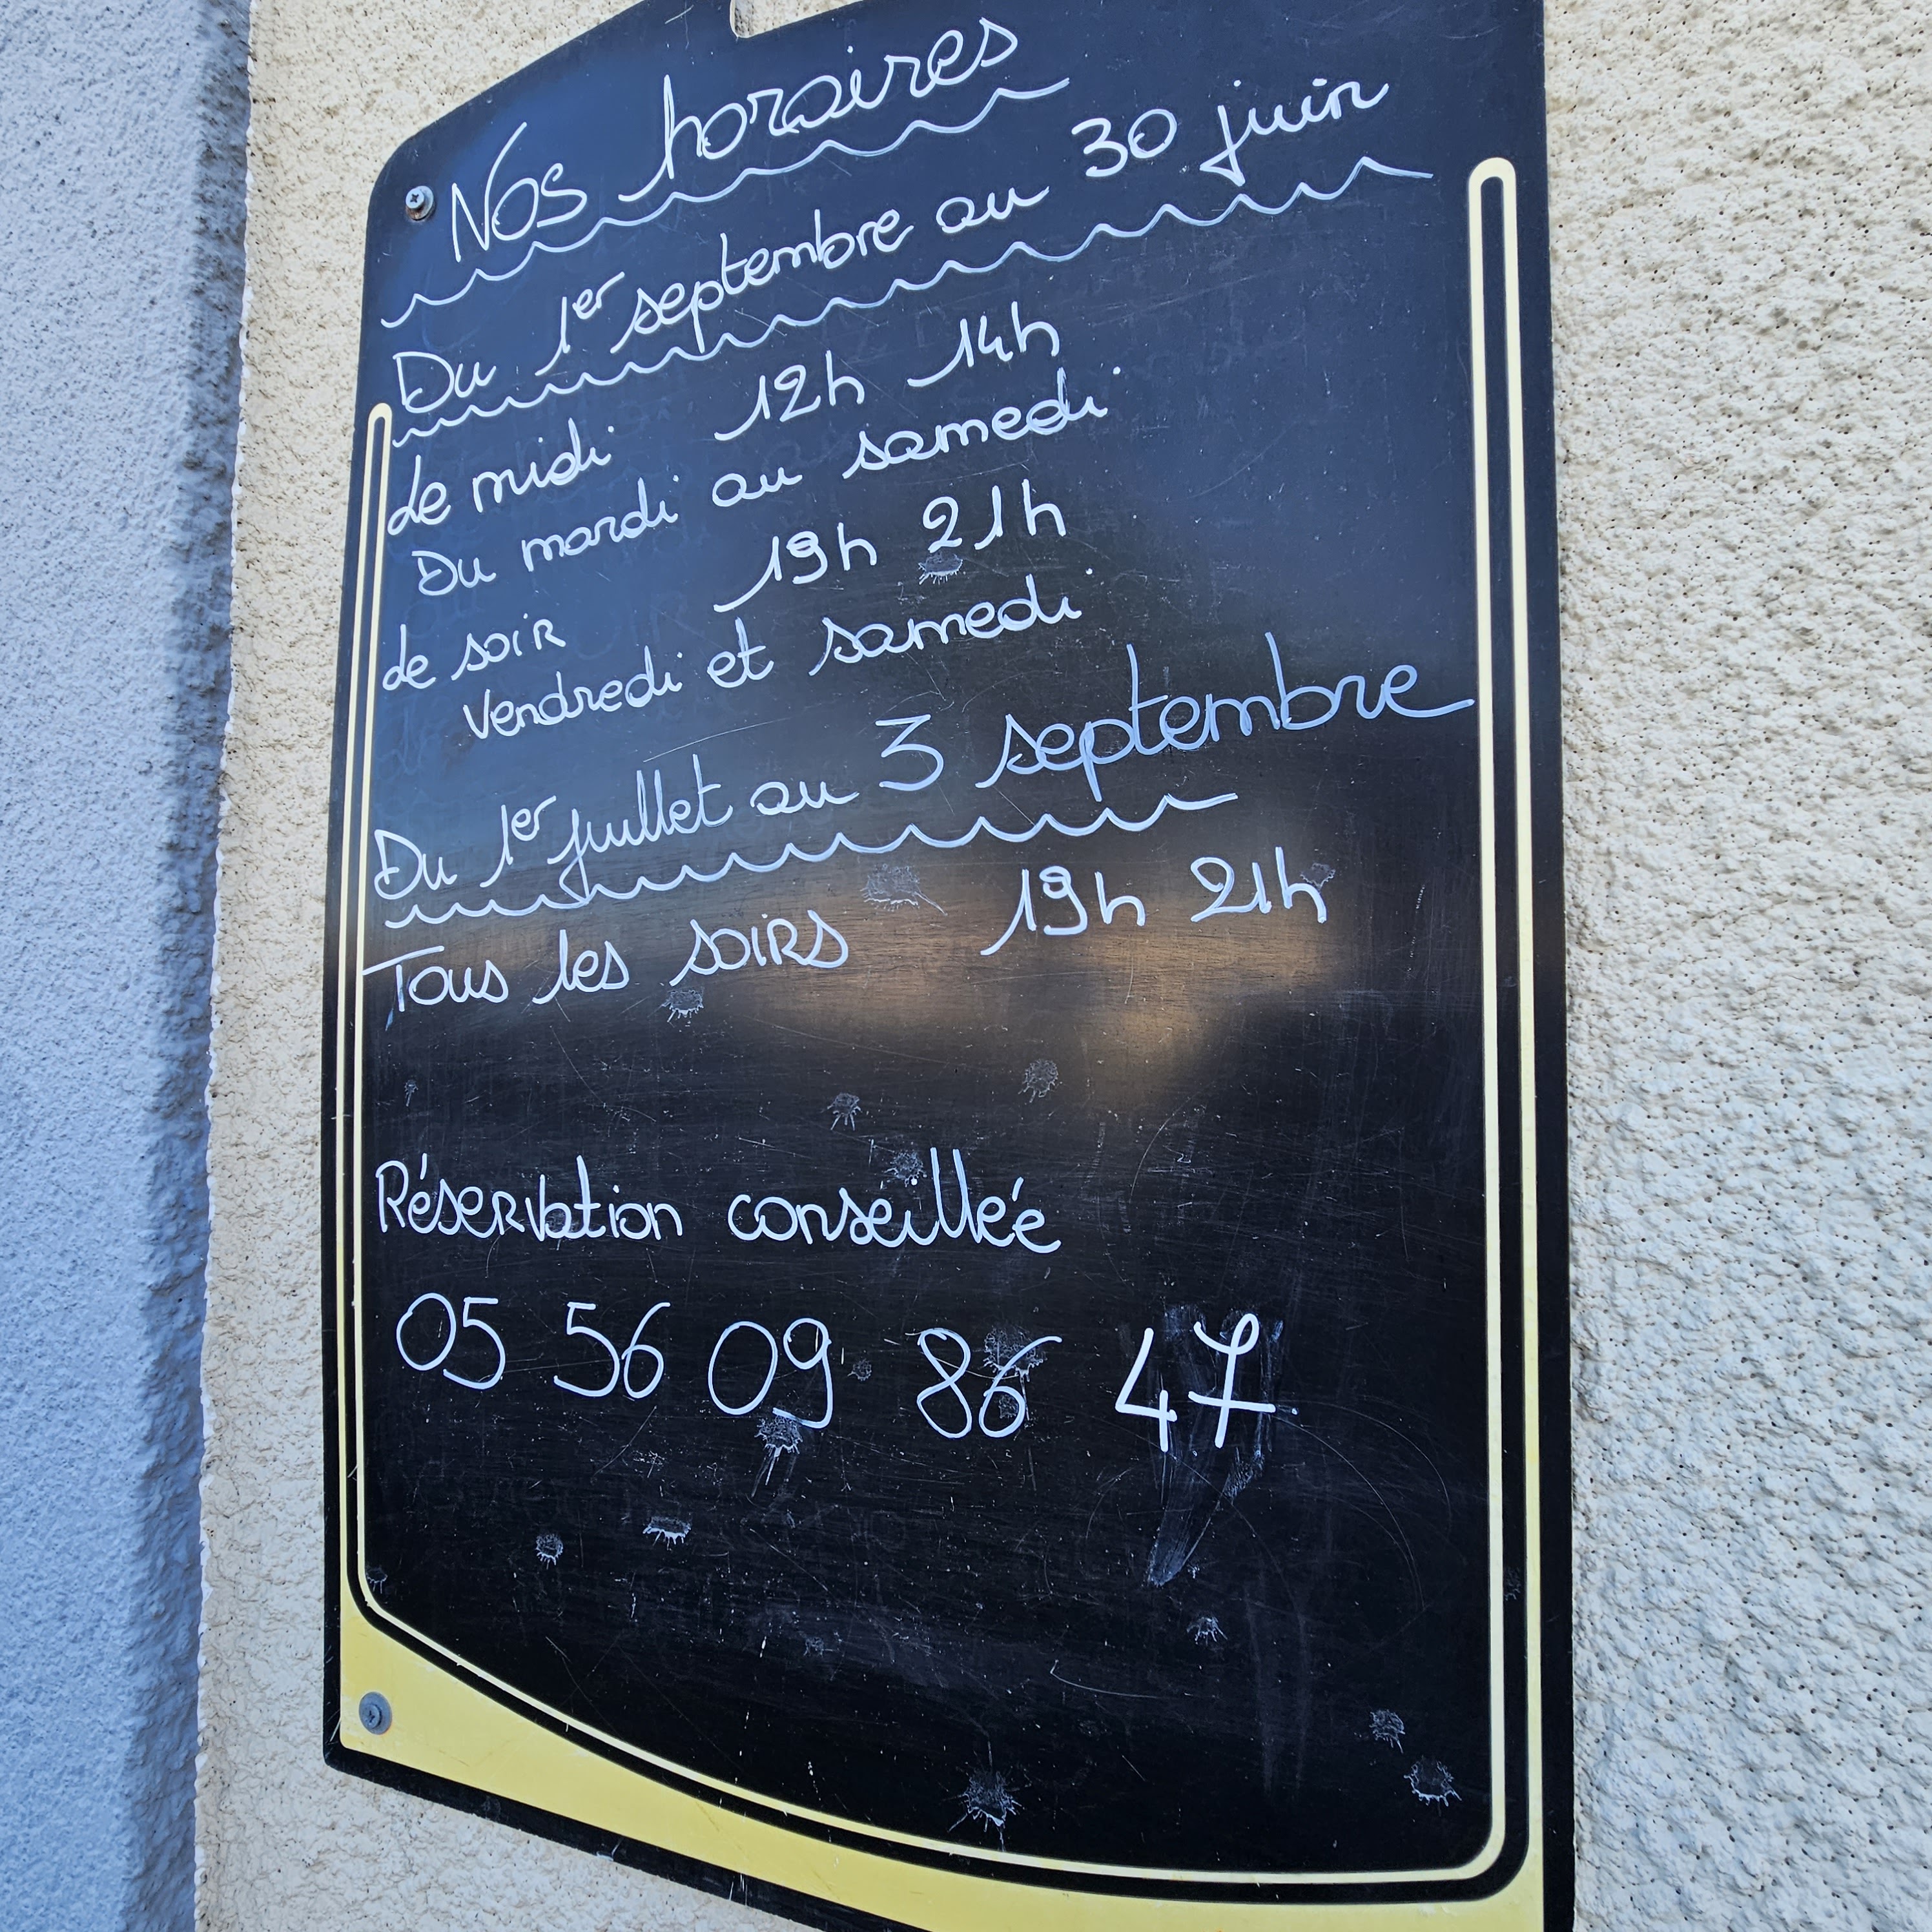 Nos horaires
Du 1er septembre au 30 juin
Le midi 12h 14h
Du mardi au samedi
Le soir 19h 21h
Vendredi et samedi
Du 1er juillet au 3 septembre
Tous les soirs 19h 21h
Réservation conseillée
05 56 09 86 47